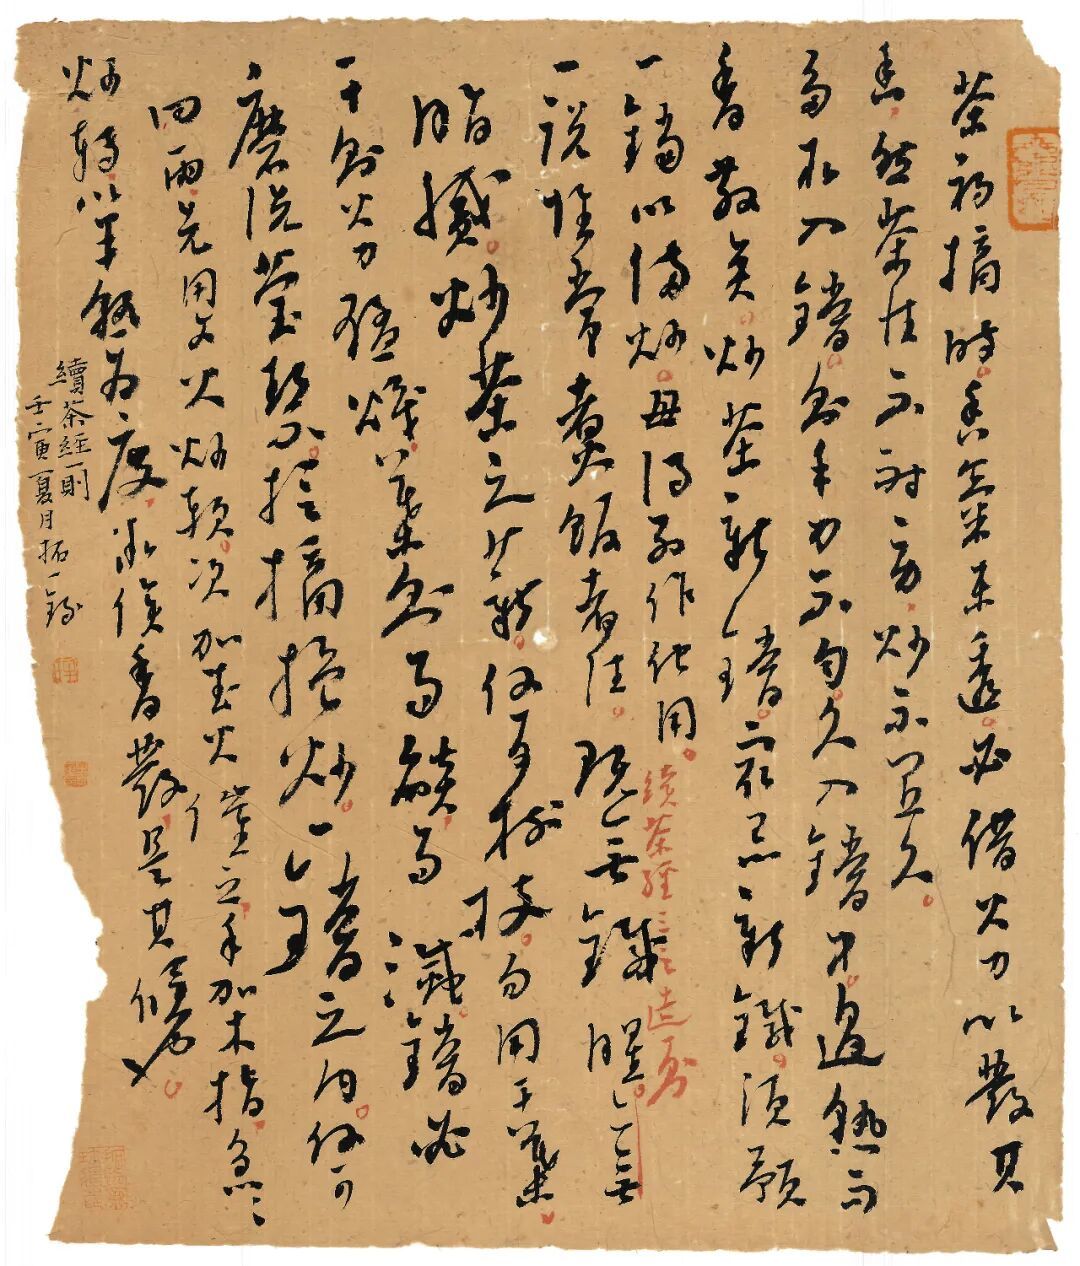 茶初摘時香氣未透必借火力以發其
香然茶性不耐勞炒不宜久
多取入鐺則手力不勻久入鐺中過熟而
香散矣炒茶新鐺最忌新鐵須預
一鐺以備炒毋得別作他用
續茶經三之造則
一說惟常煮飯者佳既無鐵腥亦無
脂膩炒茶之薪仅可樹枝勿用干葉
干則火力猛熾葉則易燄易滅鐺必
磨洗瑩潔旋摘旋炒一鐺之内仅可
四兩先用文火炒軟次加武火催之手加木指急急
炒轉以半熟為度微俟香發是其候也
續茶經一則
壬寅夏月拓一錄